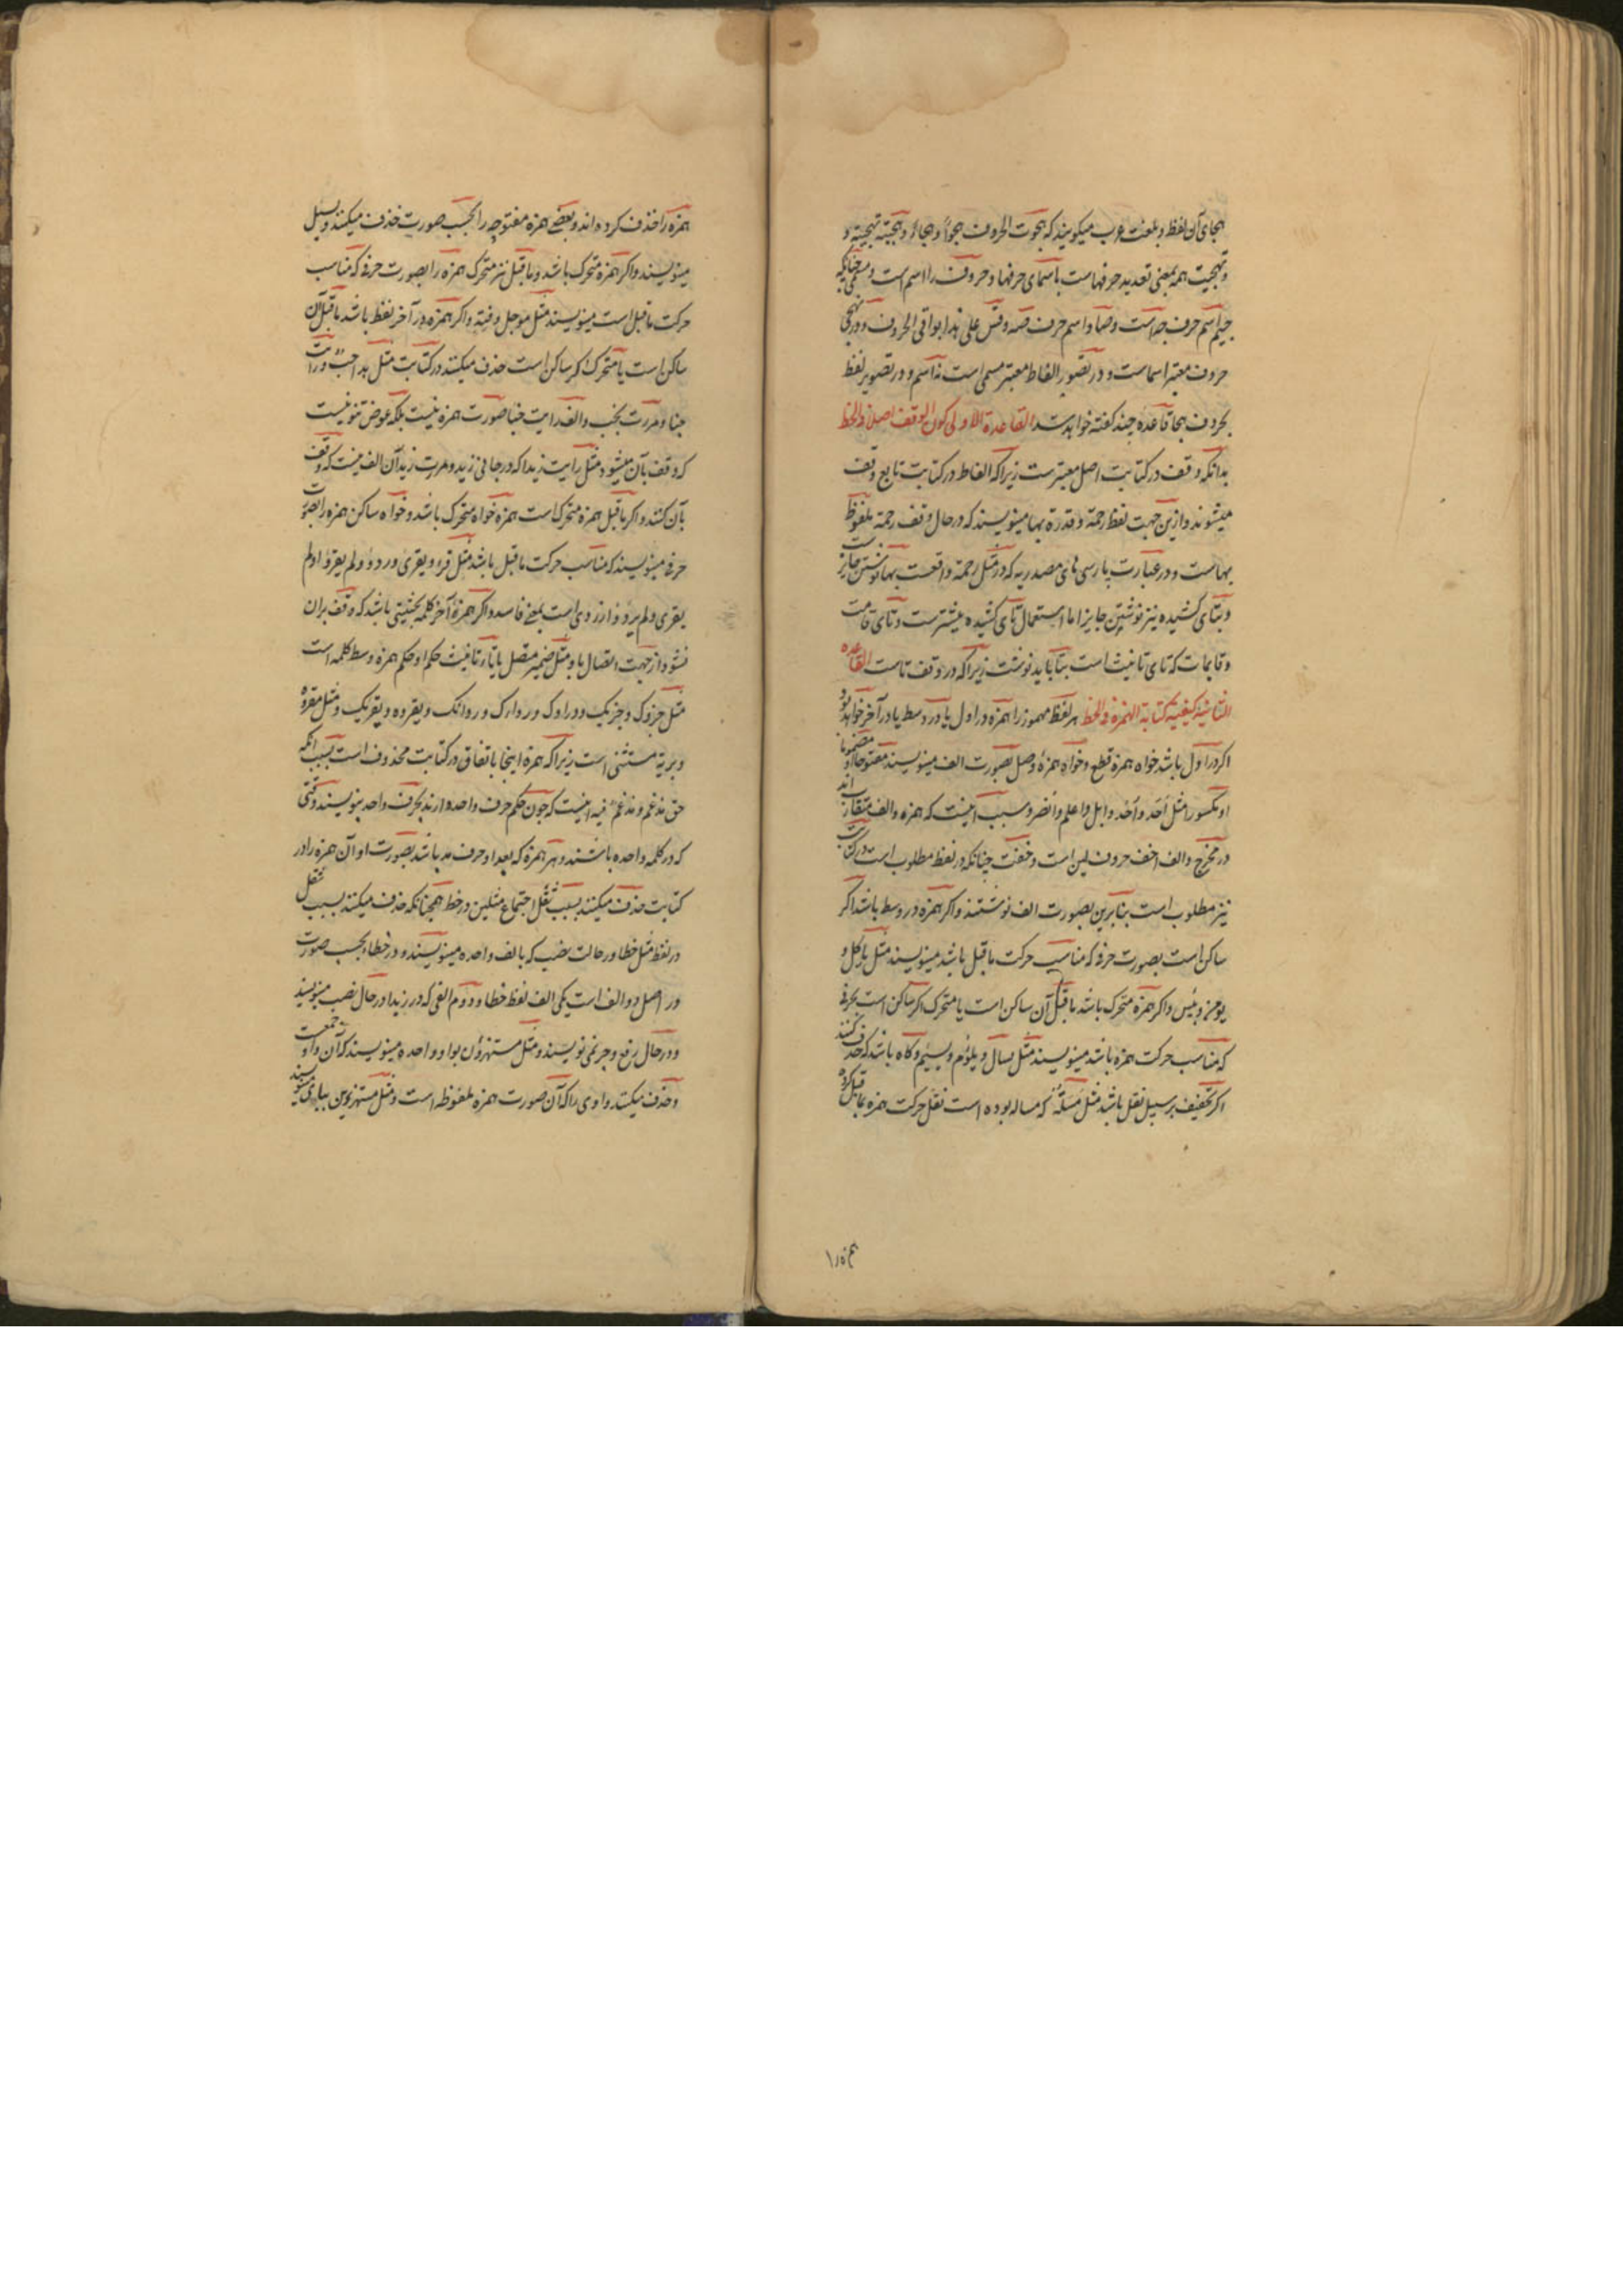 هجای آن لفظ و بلغت عرب میکویند که هجوت الحروف هجواً و هجاءً و هجیته تهجیة و
و تهجیت همه بمعنی تعدید حرفهاست باسمای حرفها و حروف را اسم است و مسمی چنانکه
جیم اسم حرف جه است و ضاد اسم حرف ضه و قس علی هذا بواقی الحروف و در تهجی
حروف معتبر اسماست و در تصویر الفاظ معتبر مسمی است نه اسم و در تصویر لفظ
بحروف هجا قاعده چند کفته خواهد شد القاعدة الاولی کون الوقف اصلا فی الخط
بدانکه وقف در کتابت اصل معتبرست زیراکه الفاظ در کتابت تابع وقف
میشوند و ازین جهت لفظ رحمة و قدرة بها مینویسند که در حال وقف رحمة ملفوظ
بهاست و در عبارت پارسی تای مصدریه که در مثل رحمة واقعست بها نوشتن جایز است
و بتای کشیده نیز نوشتن جایز اما استعمال تای کشیده بیشترست و تای قامت
و قایمات که تای تانیث است بتا باید نوشت زیراکه در وقف تاست القاعده
الثانیة کیفیة کتابة الهمزة فی الخط هر لفظ مهموز را همزه در اول یا در وسط یا در آخر خواهد بود
اکر در اول باشد خواه همزه قطع و خواه همزهٔ وصل بصورت الف مینویسند مفتوحا او مضموما
او مکسورا مثل احَد و اُخد و ابل و اعلم و انصر و سبب اینست که همزه و الف متقارب اند
در مخرج و الف اخف حروف لین است و خفت چنانکه در لفظ مطلوب است در کتابت
نیز مطلوب است بنابرین بصورت الف نوشتند و اکر همزه در وسط باشد اکر
ساکن است بصورت حرفی که مناسب حرکت ماقبل باشد مینویسند مثل یاکل و
یومن و بئس و اکر همزه متحرک باشد ماقبل آن ساکن است یا متحرک اکر ساکن است بحرفی
که مناسب حرکت همزه باشد مینویسند مثل یسال و یلؤم و یسئم و کاه باشد که حذف کنند
اکر تخفیف بر سبیل نقل باشد مثل مسلة که مسالة بوده است نقل حرکت همزه بماقبل کرده
همزه را
همزه را حذف کرده اند و بعضی همزه مفتوحه را بحسب صورت حذف میکنند و یسل
مینویسند و اکر همزه متحرک باشد و ماقبل نیز متحرک همزه را بصورت حرفی که مناسب
حرکت ماقبل است مینویسند مثل موجل و فئة و اکر همزه در آخر لفظ باشد ماقبل آن
ساکن است یا متحرک اکر ساکن است حذف میکنند در کتابت مثل هذا خبٌ و رایت
خبا و مررت بخب و الف رایت خبا صورت همزه نیست بلکه عوض تنوینست
که وقف بآن میشود مثل رایت زیدا که در جانی زید و مررت بزید آن الف نیست که وقف
بآن کنند و اکر ماقبل همزه متحرک است همزه خواه متحرک باشد و خواه ساکن همزه را بصورت
حرفی مینویسند که مناسب حرکت ماقبل باشد مثل قرء و یقری و ردؤ و لم یقرؤ او لم
یقری و لم یردؤ و اردوی است بمعنی فاسد و اکر همزهٔ آخر کلمه بحیثیتی باشد که وقف بران
نشود از جهت اتصال باو مثل ضمیر متصل یا تاء تانیث حکم او حکم همزه وسط کلمه است
مثل جزؤک و جزیک و رداوک و رداءک و ردائک و یقروه و یقرئک و مثل مقروة
و بریة مستثنی است زیراکه همزه اینجا باتفاق در کتابت محذوف است بسبب آنکه
حق مدغم و مدغم فیه اینست که چون حکم حرف واحد دارند بحرف واحد بنویسند وقتی
که در کلمه واحده باشند و هر همزه که بعد او حرف مد باشد بصورت او آن همزه را در
کتابت حذف میکنند بسبب ثقل اجتماع مثلین در خط همچنانکه حذف میکنند بسبب ثقل
در لفظ مثل خطا در حالت نصب که بالف واحده مینویسند و در خطاء بحسب صورت
در اصل دو الف است یکی الف لفظ خطا و دوم الفی که در زیدا در حال نصب مینویسند
و در حال رفع و جر نمی نویسند و مثل مستهزؤن بواو واحده مینویسند که آن واو جمعست
و حذف میکنند واوی را که آن صورت همزه ملفوظه است و مثل مستهزئین بیای مینویسند